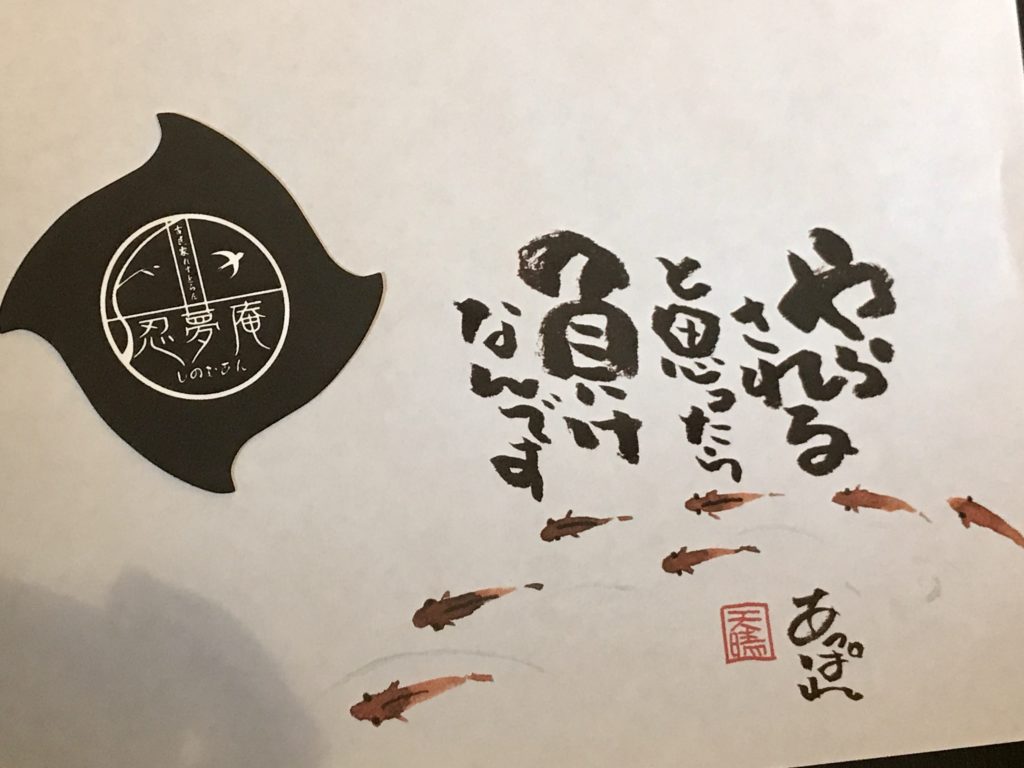 やらされる
と思ったら
負け
なんです
あっぱれ
天晴
古民家れすとらん
忍夢庵
しのぶあん